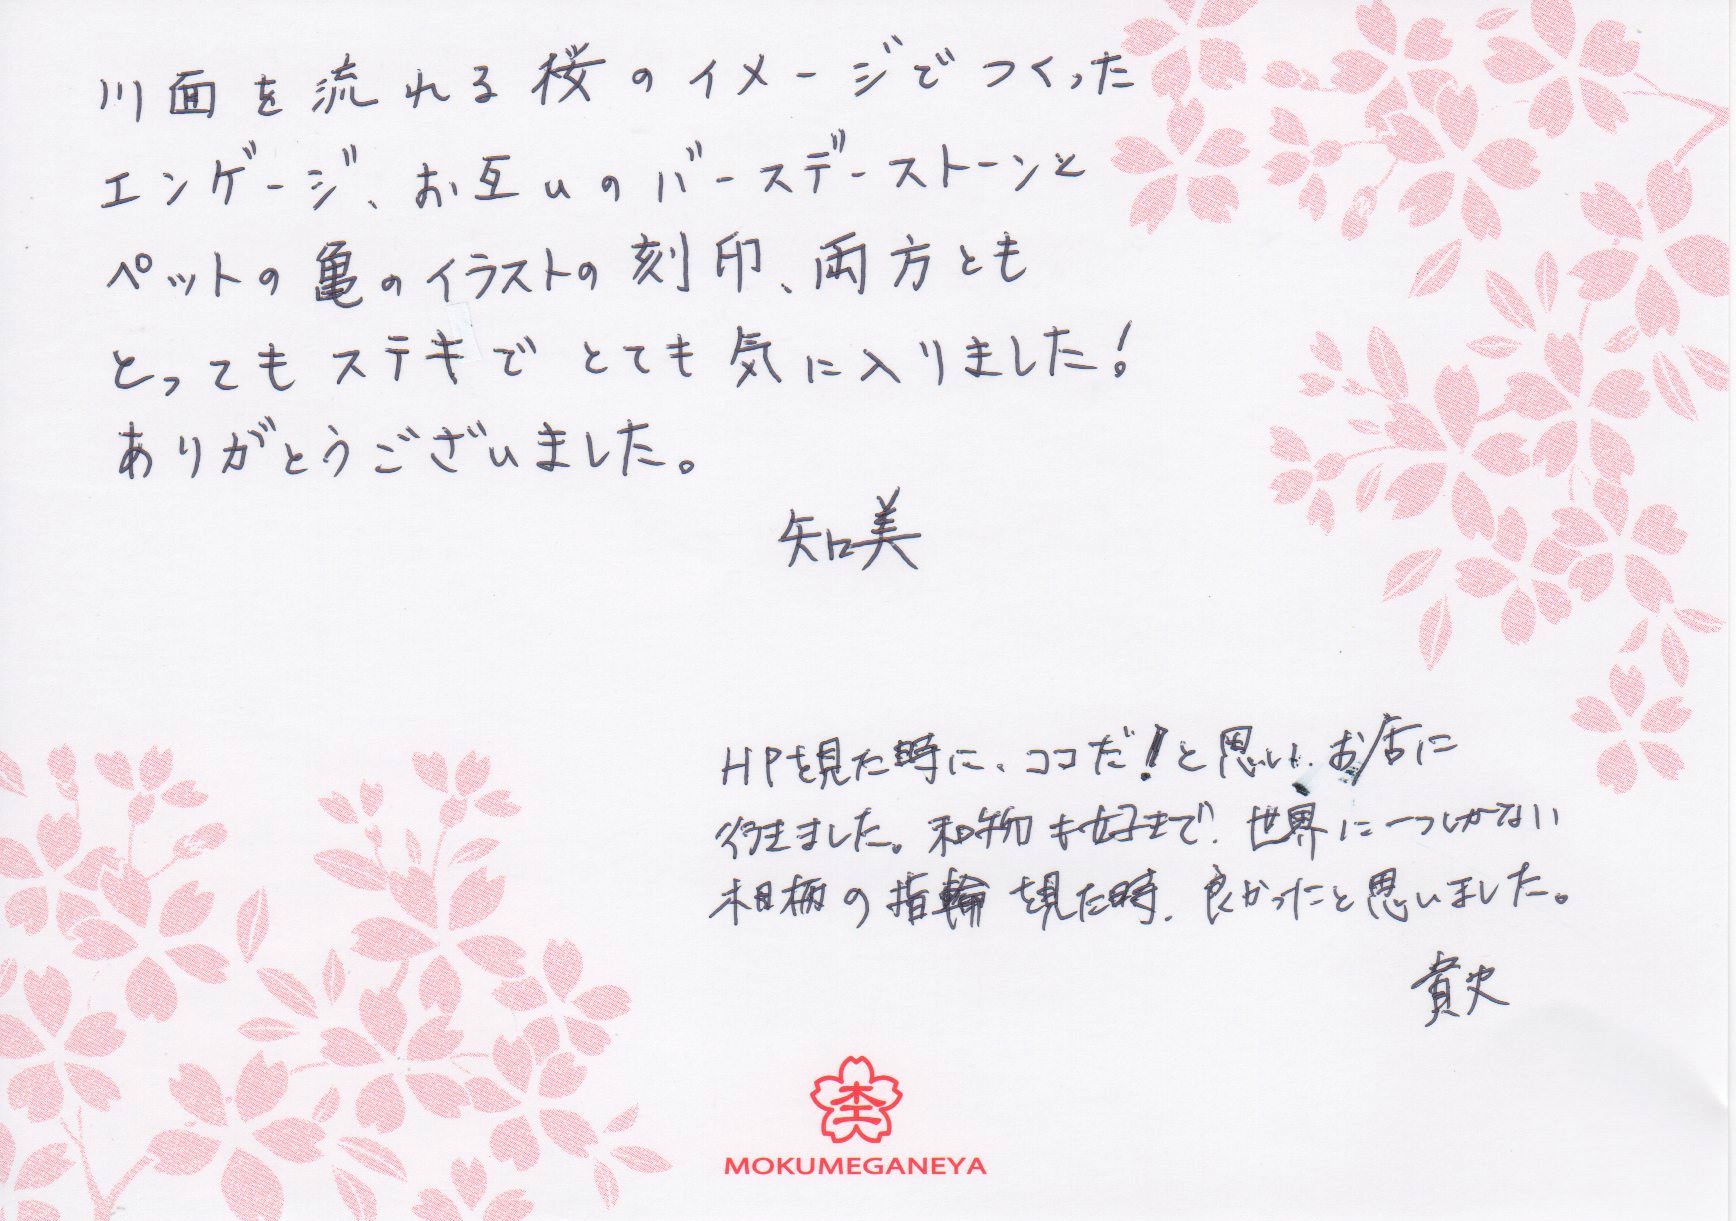 川面を流れる桜のイメージでつくった
エンゲージ、お互いのバースデーストーンと
ペットの亀のイラストの刻印、両方とも
とってもステキでとても気に入りました!
ありがとうございました。
知美
HPを見た時に、ココだ!と思い、お店に
行きました。和物も好きで、世界に一つしかない
木目柄の指輪を見た時、良かったと思いました。
貴史
杢
MOKUMEGANEYA